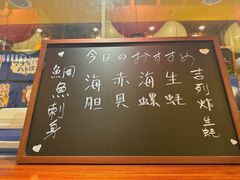 今日のおすすめ
吉列炸生蚝
生蚝
海螺
赤貝
海胆
鯛魚刺身